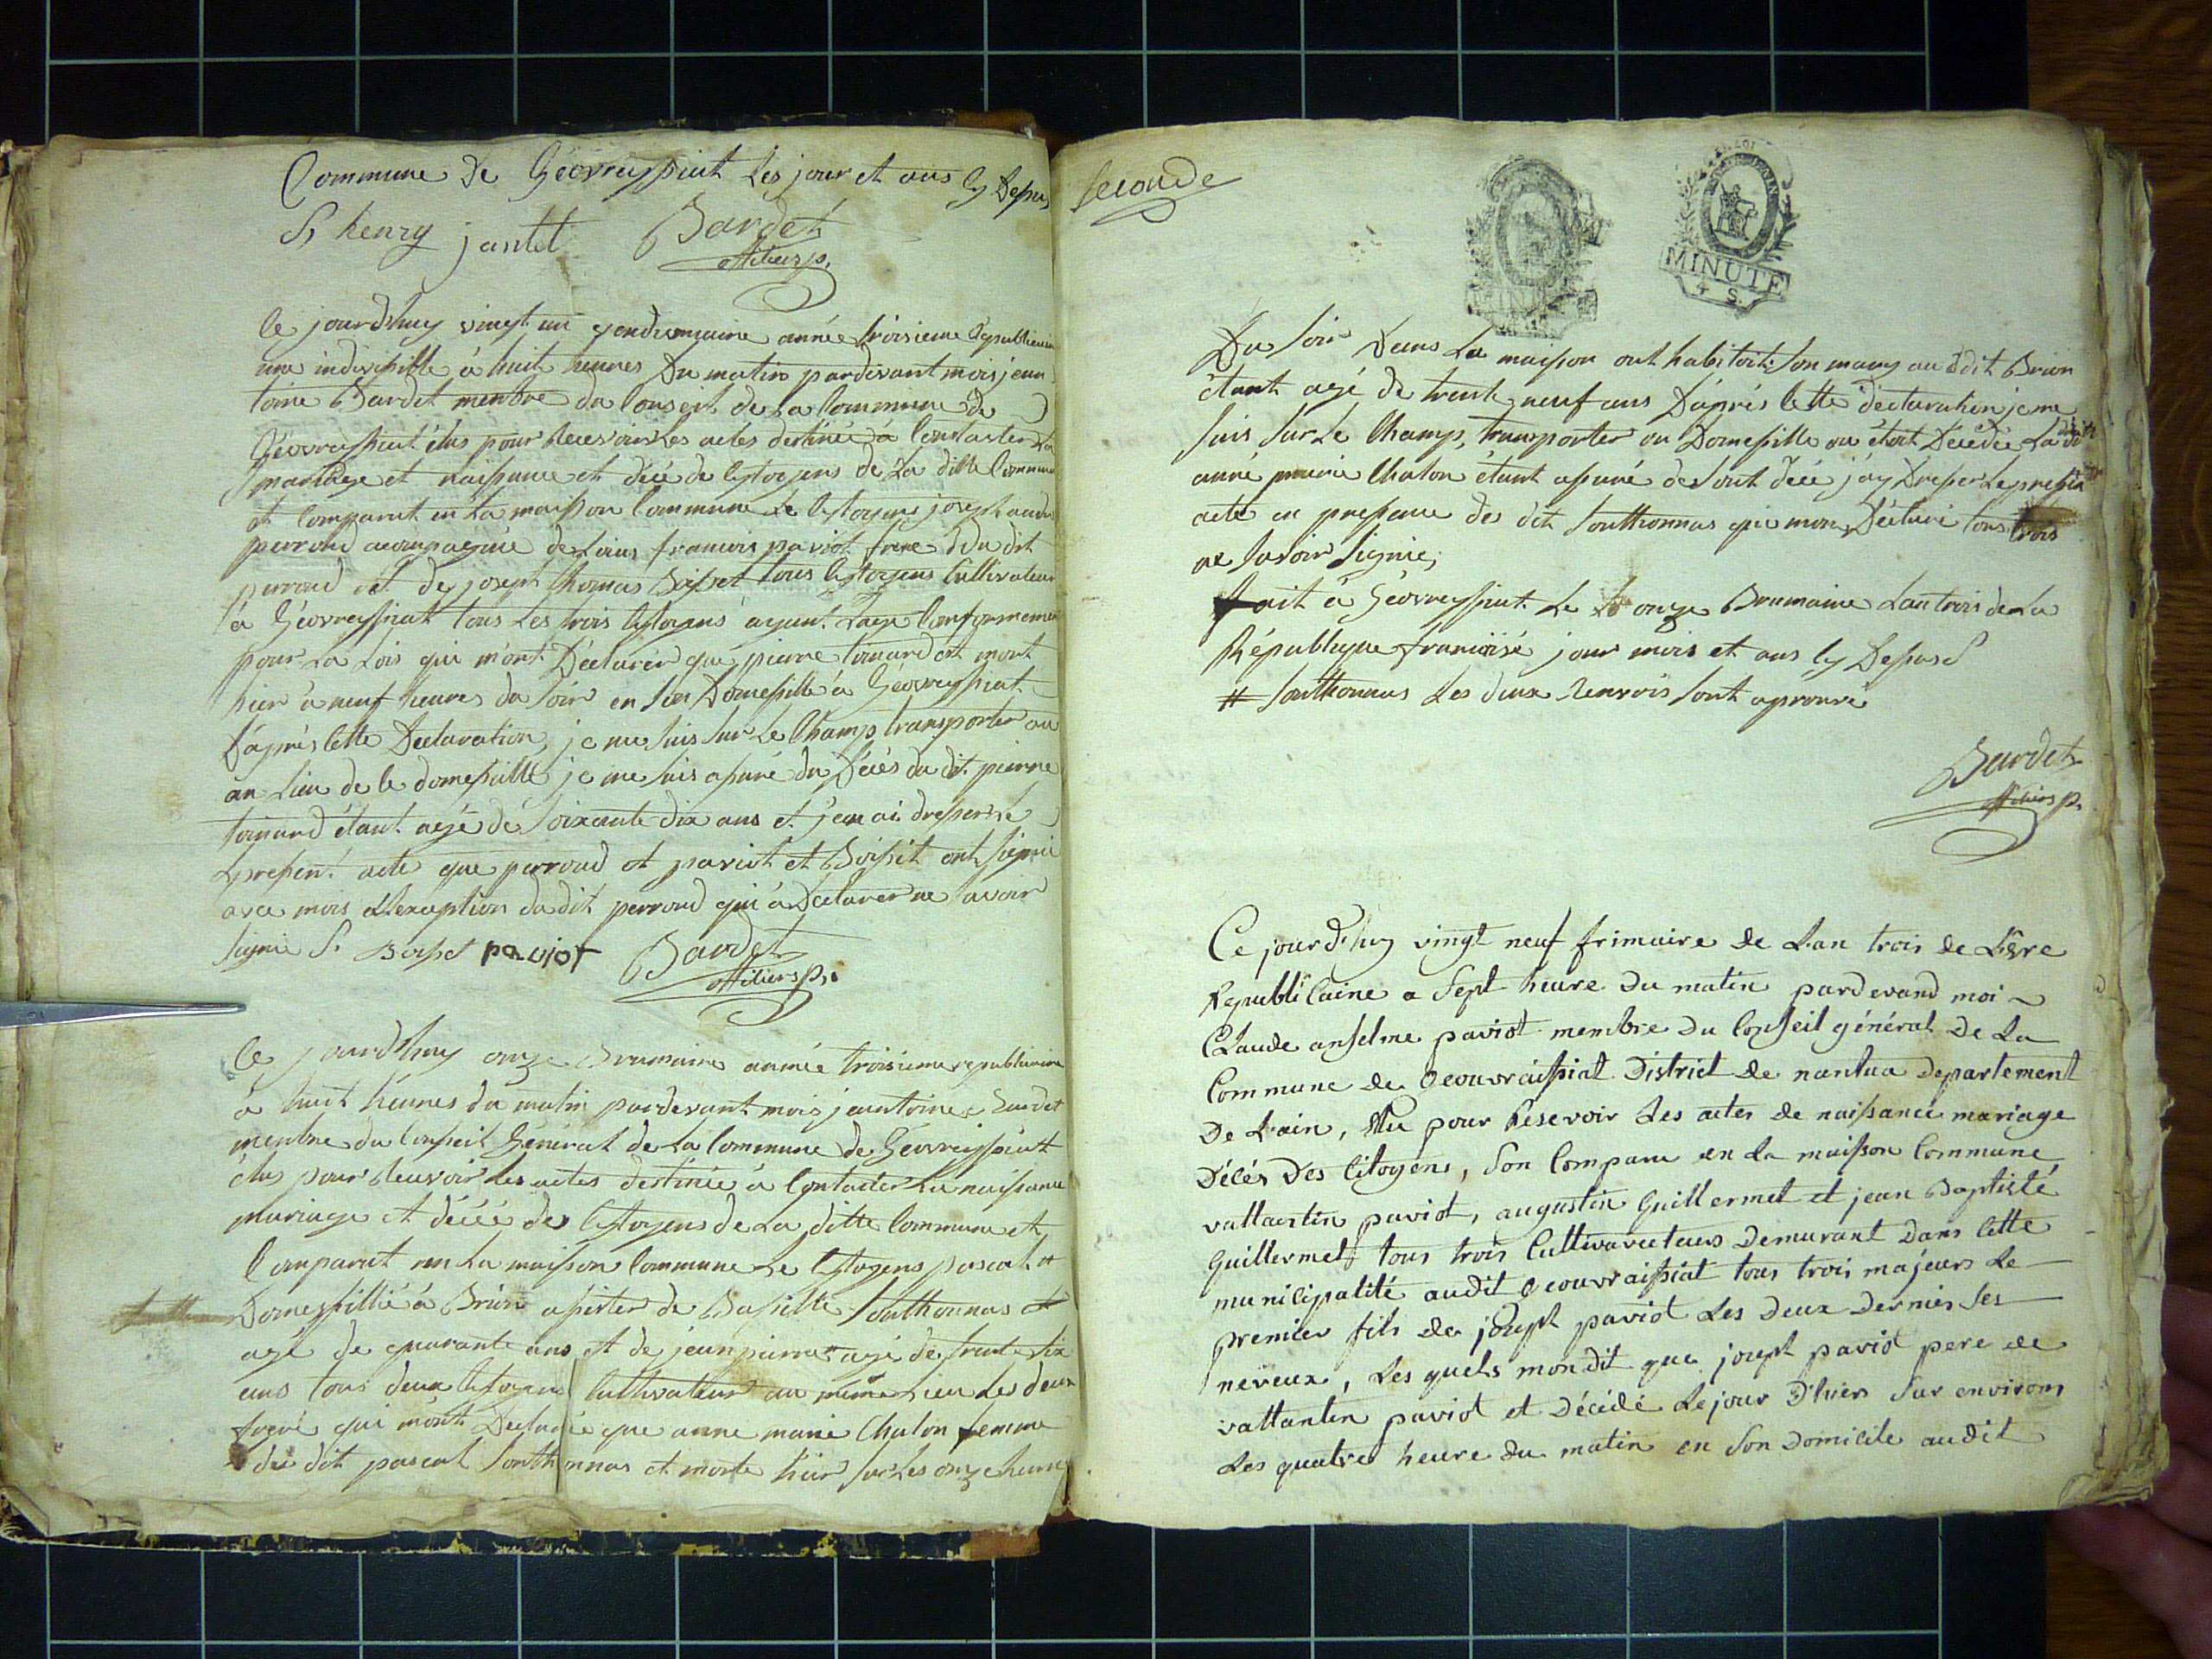 Commune de Géovreyssiat Les jour et ans cy Dessus
S. henry jantet Bardet
officiers p.
Ce jourdhuy vingt un vendemiaire année troisieme Republicain
une indivisible à huit heures Du matin pardevant mois jean
toine Bardet menbre du Conseil de La Commune de
Géovreyssiat élus pour Recevoir Les actes destinée à Constater La
mariage et naissance et décé de Cytoyens de La ditte Commune
et Comparut en La maison Commune Le Cytoyens joseph
perroud acompagnié de Louis francois paviot frere du dit
perroud et de joseph thomas Boisset tous Cytoyens Cultivateur
à Géovreyssiat tous Les trois Cytoyens ayant Lage Conformement
pour La Lois qui m'ont Déclarér que pierre toinard est mort
hier à neuf heures du Soir en Son Domessille à Géovreyssiat
D'après Cette Déclaration je me Suis Sur Le Champ transporter au
au Lieu de le domessille je me Suis assuré du Décés du dit pierre
toinard étant agé de Soixante dix ans et j'en ai dresser Le
presen.t acte que perroud et paviot et Boisset ont Signié
avec mois à Lexception du dit perroud qui à Déclarer ne Savoir
Signié S. Boisset paviot Bardet
officiers p.
Ce jourdhuy onze Brumaire année troisieme republicaine
à huit heures du matin pardevant mois jeantoine Bardet
menbre du Conseil Géneral de La Commune de Géovreissiat
élus pour Recevoir Les actes destinée à Constater La naissance
mariage et décéé des Cytoyens de La ditte Commune et
Comparut en La maison Commune Le Cytoyens pascal #
Domessillié à Brion assister de Bassille Southonnas et
agé de quarante ans et de jean pierre agé de trente six
ans tous deux Cytoyens Cultivateur au même Lieu Les deux
freré qui m'ont Declarée que anne marie Chaton femme
du dit pascal Southonnas et morte hier Sur Les onze heures
Seconde
MINUTE
4 S.
Du Soir Dans La maison ont habitoit Son mary au dit Brion
étant agé de trente neuf ans D'après Cette déclaration je me
Suis Sur Le Champ, transporter au Domessille ou étoit Décédée La dite
anne marie Chaton étant assuré de Sont décé j'ay Dresser Le pressent
acte en pressence des dit Southonnas qui mon Déclaré tous trois
ne Savoir Signié,
fait à Géovreyssiat Le onze Brumaire Lan trois de La
République francoisé jour mois et ans Cy Dessus S
# Southonnas Les deux Renvois Sont aprouvé
Bardet
officiers p.
Ce jourd'huy vingt neuf frimaire de L'an trois de L'ere
Republicaine a Sept heure Du matin pardevand moi
Claude anselme paviot membre Du Conseil général De La
Commune de Geouvraissiat District de nantua Departement
De L'ain, Elu pour Resevoir Les actes de naissancé mariage
Décés Des Citoyens, Son Comparu en La maison Commune
vallantin paviot, augustin Guillermet et jean Baptisté
Guillermet tous trois Cultivaveteurs Demurant Dans Cette
municipalité audit Geouvraissiat tous trois majeurs Le
premier fils de joseph paviot Les Deux Dernier Ses
neveux, Les quels mon dit que joseph paviot pere de
vallantin paviot et Décédé Le jour D'hiers Sur environs
Les quatre heure Du matin en Son Domicile audit